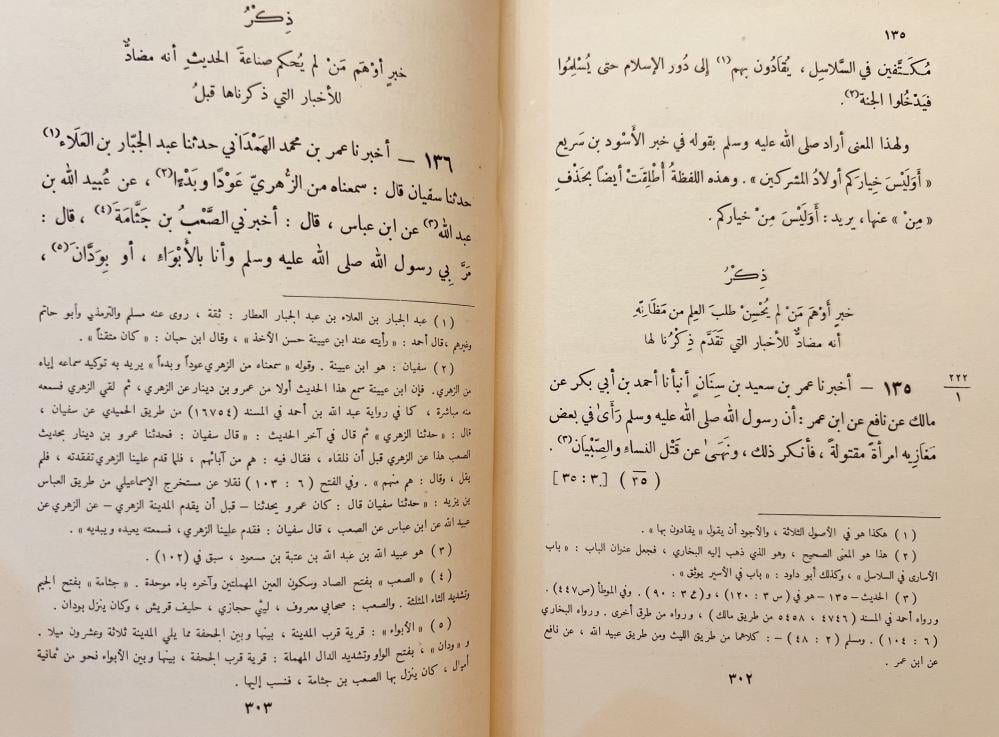 ١٣٥
مُكَتَّفين في السَّلاسِل ، يُقَادُون بهم(١) إلى دُور الإسلام حتى يُسْلِمُوا
فيَدْخُلوا الجنة(٢).
ولهذا المعنى أراد صلى الله عليه وسلم بقوله في خبر الأَسْود بن سَريع
« أَوَلَيْسَ خِيارَكم أولادُ المشركين » . وهذه اللفظةُ أُطْلِقَتْ أيضاً بحَذْفِ
« مِنْ » عنها ، يريد : أَوَلَيْسَ مِنْ خياركم .
ذِكْرُ
خبرٍ أَوْهَمَ مَنْ لم يُحْسِنْ طلبَ العِلم من مَظَانِّهِ
أنه مضادٌّ للأخبار التي تَقَدَّم ذِكْرُنا لها
٢٢٢
١
١٣٥ – أخبرنا عمر بن سعيد بن سِنَانٍ أنبأنا أحمد بن أبي بكر عن
مالك عن نافع عن ابن عمر : أن رسول الله صلى الله عليه وسلم رَأَىٰ في بعض
مَغَازِيه امرأةً مقتولةً ، فأنكر ذلك ، ونهَىٰ عن قَتْل النساء والصِّبْيَان(٣) .
( ٣٥ ) [٣ : ٣٥]
(١) هكذا هو في الأصول الثلاثة ، والأجود أن يقول « يقادون بها » .
(٢) هذا هو المعنى الصحيح ، وهو الذي ذهب إليه البخاري ، فجعل عنوان الباب : « باب
الأسارى في السلاسل » ، وكذلك أبو داود : « باب في الأسير يوثق » .
(٣) الحديث – ١٣٥ – هو في ( س ٣ : ١٢٠ ) ، و ( ع ٣ : ٩٠ ) . وفي الموطأ ( ص ٤٤٧ ) .
ورواه أحمد في المسند ( ٤٧٤٦ ، ٥٤٥٨ من طريق مالك ) ، ورواه من طرق أخرى . ورواه البخاري
( ٦ : ١٠٤ ) . ومسلم ( ٢ : ٤٨ ) – : كلاهما من طريق الليث ومن طريق عبيد الله ، عن نافع
عن ابن عمر .
٣٠٢
ذِكْرُ
خبرٍ أوْهَم مَنْ لم يُحكم صناعةَ الحديثِ أنه مضادٌّ
للأخبار التي ذكرناها قبلُ
١٣٦ – أخبرنا عمر بن محمد الهَمْدَاني حدثنا عبد الجبّار بن العَلَاء(١)
حدثنا سفيان قال : سمعناه من الزُّهريّ عَوْدًا وبَدْءًا(٢) ، عن عُبيد الله بن
عبد الله(٣) عن ابن عباس ، قال : أخبرني الصَّعْبُ بن جَثَّامَةَ(٤) ، قال :
مَرَّ بِي رسول الله صلى الله عليه وسلم وأنا بالأَبْوَاء ، أو بِوَدَّانَ(٥) ،
(١) عبد الجبار بن العلاء بن عبد الجبار العطار : ثقة ، روى عنه مسلم والترمذي وأبو حاتم
وغيرهم ، قال أحمد : « رأيته عند ابن عيينة حسن الأخذ » ، وقال ابن حبان : « كان متقناً » .
(٢) سفيان : هو ابن عيينة . وقوله « سمعناه من الزهري عوداً وبدءاً » يريد به توكيد سماعه إياه
من الزهري . فإن ابن عيينة سمع هذا الحديث أولا من عمرو بن دينار عن الزهري ، ثم لقي الزهري فسمعه
منه مباشرة ، كما في رواية عبد الله بن أحمد في المسند ( ١٦٧٥٤ ) من طريق الحميدي عن سفيان ،
قال : « حدثنا الزهري » ثم قال في آخر الحديث : « قال سفيان : فحدثنا عمرو بن دينار بحديث
الصعب هذا عن الزهري قبل أن نلقاه ، فقال فيه : هم من آبائهم ، فلما قدم علينا الزهري تفقدته ، فلم
يقل ، وقال : هم منهم » . وفي الفتح ( ٦ : ١٠٣ ) نقلا عن مستخرج الإسماعيلي من طريق العباس
بن يزيد : « حدثنا سفيان قال : كان عمرو يحدثنا – قبل أن يقدم المدينة الزهري – عن الزهري عن
عبيد الله عن ابن عباس عن الصعب ، قال سفيان : فقدم علينا الزهري ، فسمعته يعيده ويبديه » .
(٣) هو عبيد الله بن عبد الله بن عتبة بن مسعود ، سبق في ( ١٠٢ ) .
(٤) « الصعب » بفتح الصاد وسكون العين المهملتين وآخره باء موحدة . « جثامة » بفتح الجيم
وتشديد الثاء المثلثة . والصعب : صحابي معروف ، ليثي حجازي ، حليف قريش ، وكان ينزل بودان .
(٥) « الأبواء » : قرية قرب المدينة ، بينها وبين الجحفة مما يلي المدينة ثلاثة وعشرون ميلا .
و « ودان » ، بفتح الواو وتشديد الدال المهملة : قرية قرب الجحفة ، بينها وبين الأبواء نحو من ثمانية
أميال ، كان ينزل بها الصعب بن جثامة ، فنسب إليها .
٣٠٣